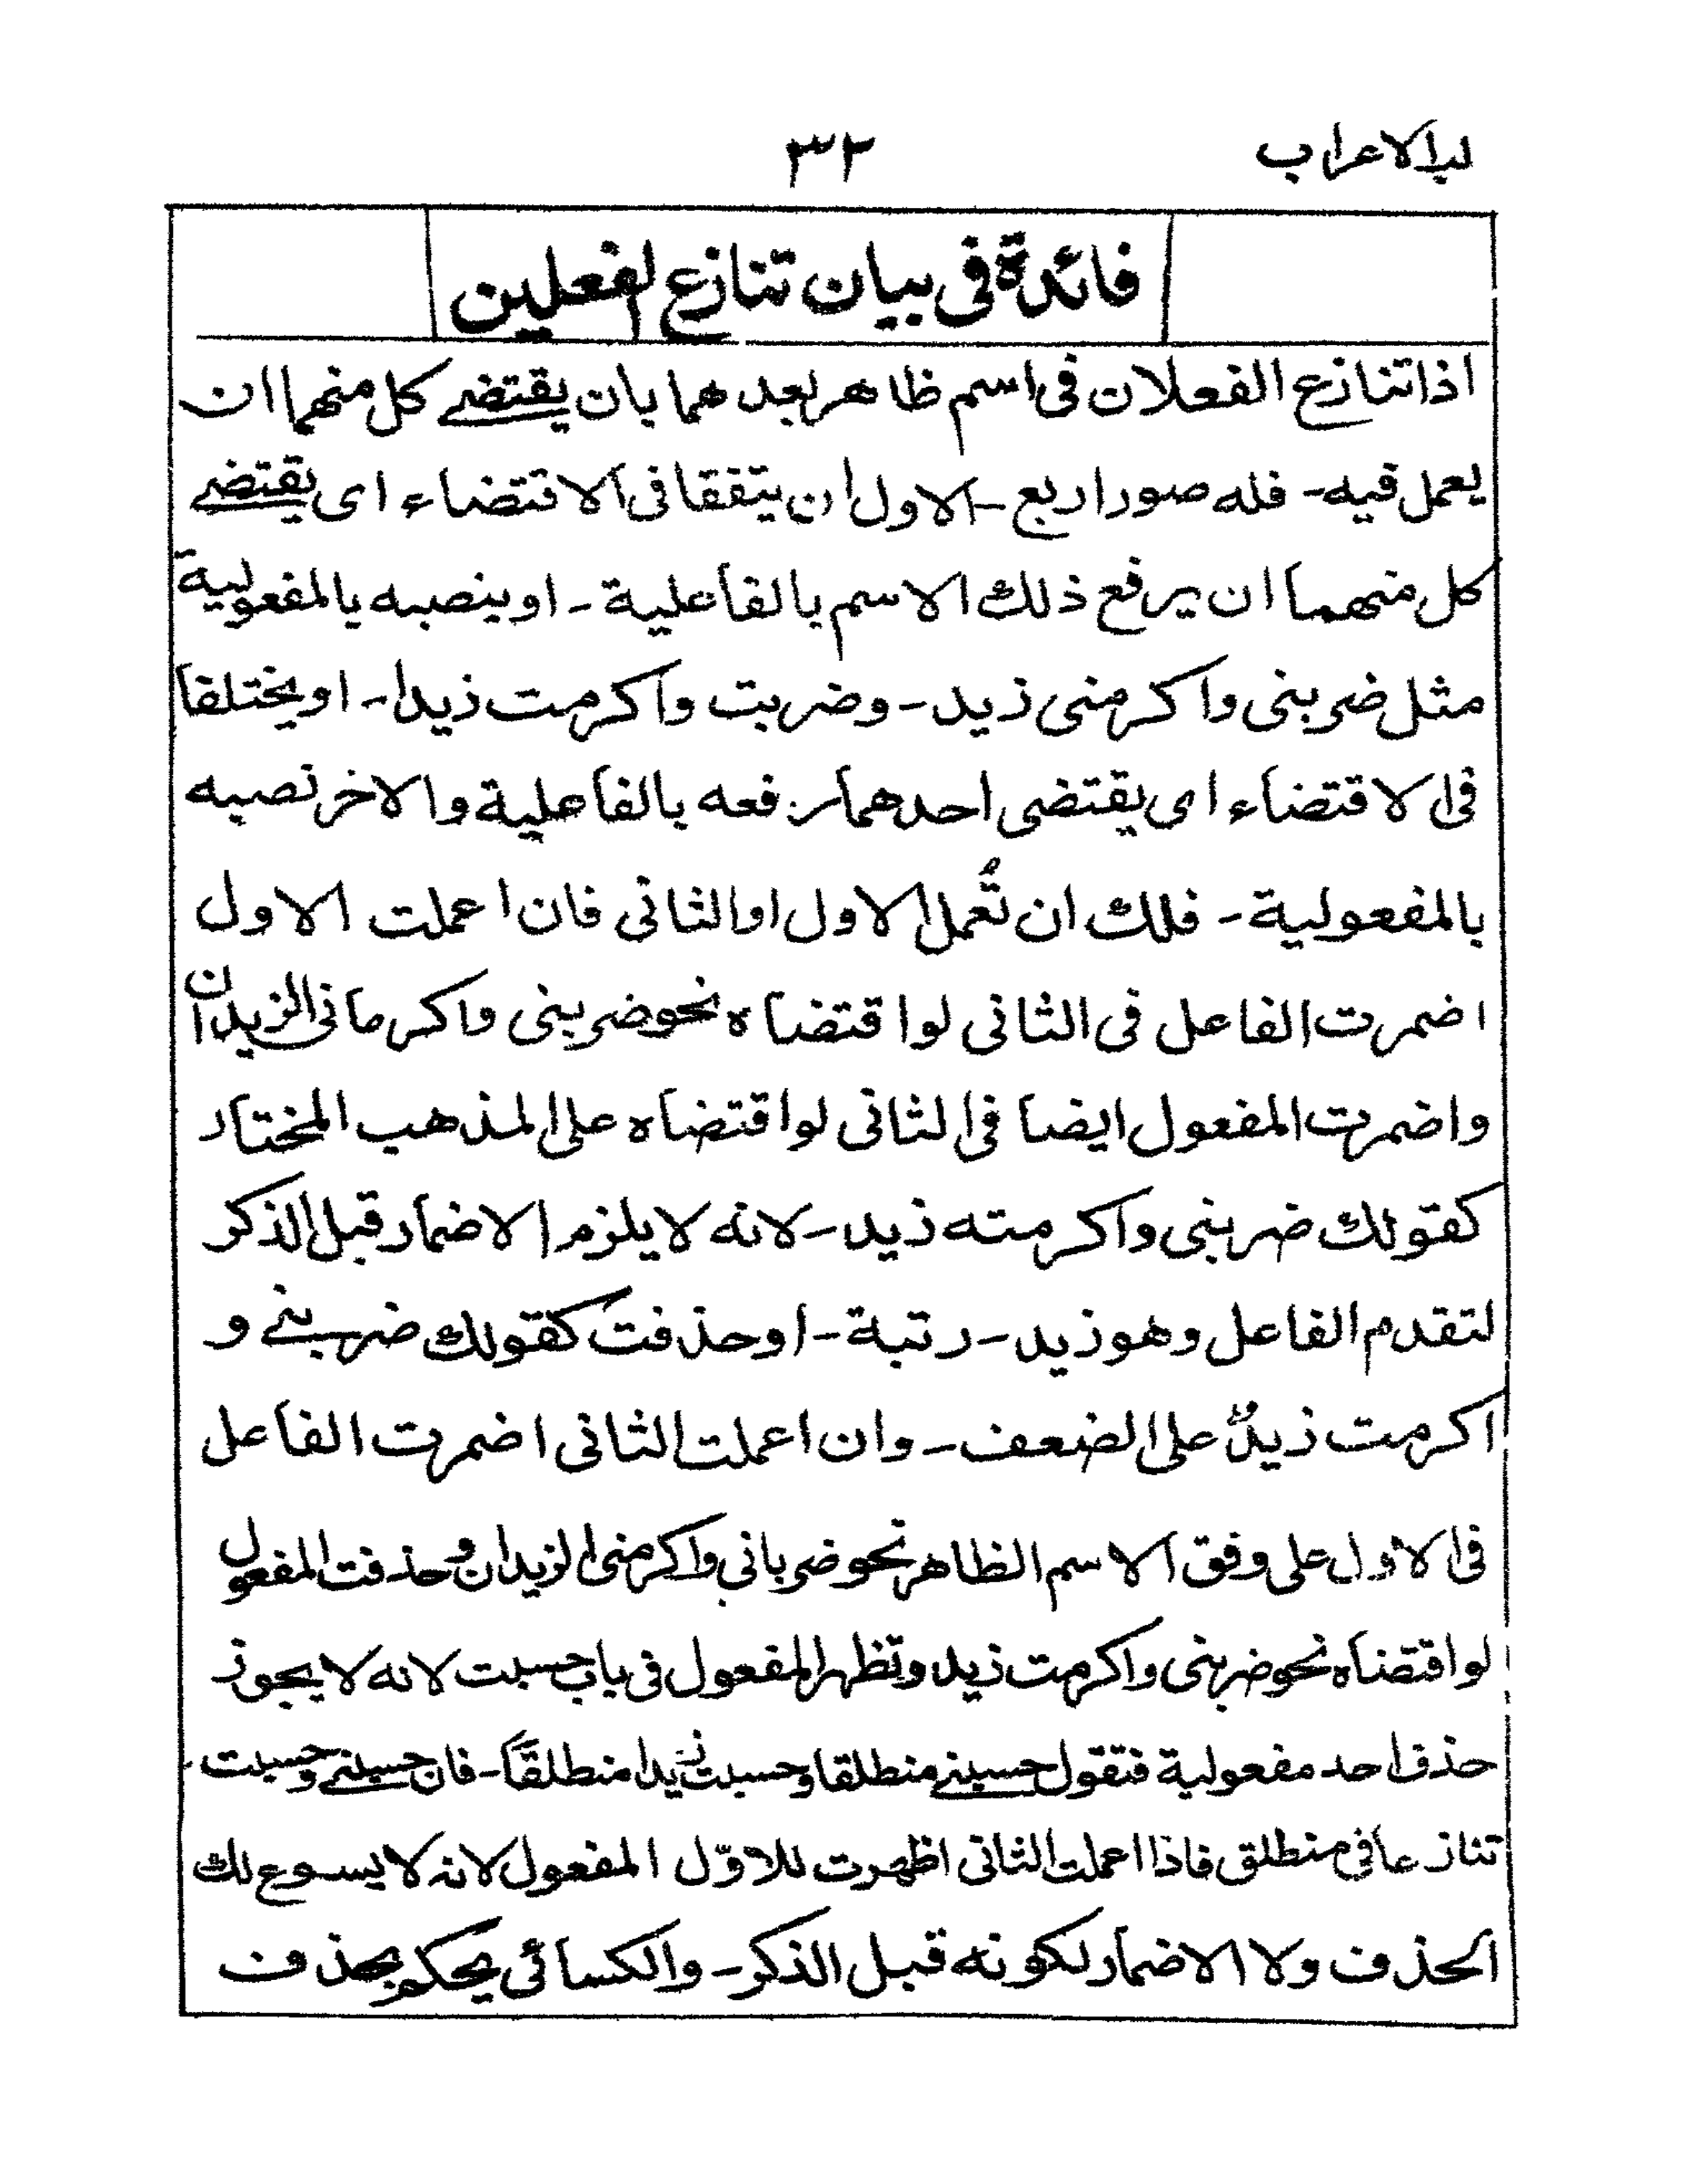 لب الاعراب
٣٢
فائدة فى بيان تنازع الفعلين
اذا تنازع الفعلان فى اسم ظاهر بعد هما بان يقتضے كل منهما ان
يعمل فيه - فله صور اربع - الاول ان يتفقا فى الاقتضاء اى يقتضے
كل منهما ان يرفع ذلك الاسم بالفاعلية - او ينصبه بالمفعولية
مثل ضربنى واكرمنى زيد - وضربت واكرمت زيدا - او يختلفا
فى الاقتضاء اى يقتضى احدهما رفعه بالفاعلية والاخر نصبه
بالمفعولية - فلك ان تُعمل الاول او الثانى فان اعملت الاول
اضمرت الفاعل فى الثانى لو اقتضاه نحو ضربنى واكرمانى الزيدان
واضمرت المفعول ايضا فى الثانى لو اقتضاه على المذهب المختار
كقولك ضربنى واكرمته زيد - لانه لا يلزم الاضمار قبل الذكر
لتقدم الفاعل وهو زيد - رتبة - او حذفت كقولك ضربنے و
اكرمت زيدٌ على الضعف - وان اعملت الثانى اضمرت الفاعل
فى الاول على وفق الاسم الظاهر نحو ضربانى واكرمنى الزيدان وحذفت المفعول
لو اقتضاه نحو ضربنى واكرمت زيد وتظهر المفعول فى باب حسبت لانه لا يجوز
حذف احد مفعولية فتقول حسبنے منطلقا وحسبت زيدا منطلقا - فان حسبنے وحسبت -
تنازعا فى منطلق فاذا اعملت الثانى اظهرت للاوّل المفعول لانه لا يسوع لك
الحذف ولا الاضمار لكونه قبل الذكر - والكسائى يحكم بحذف